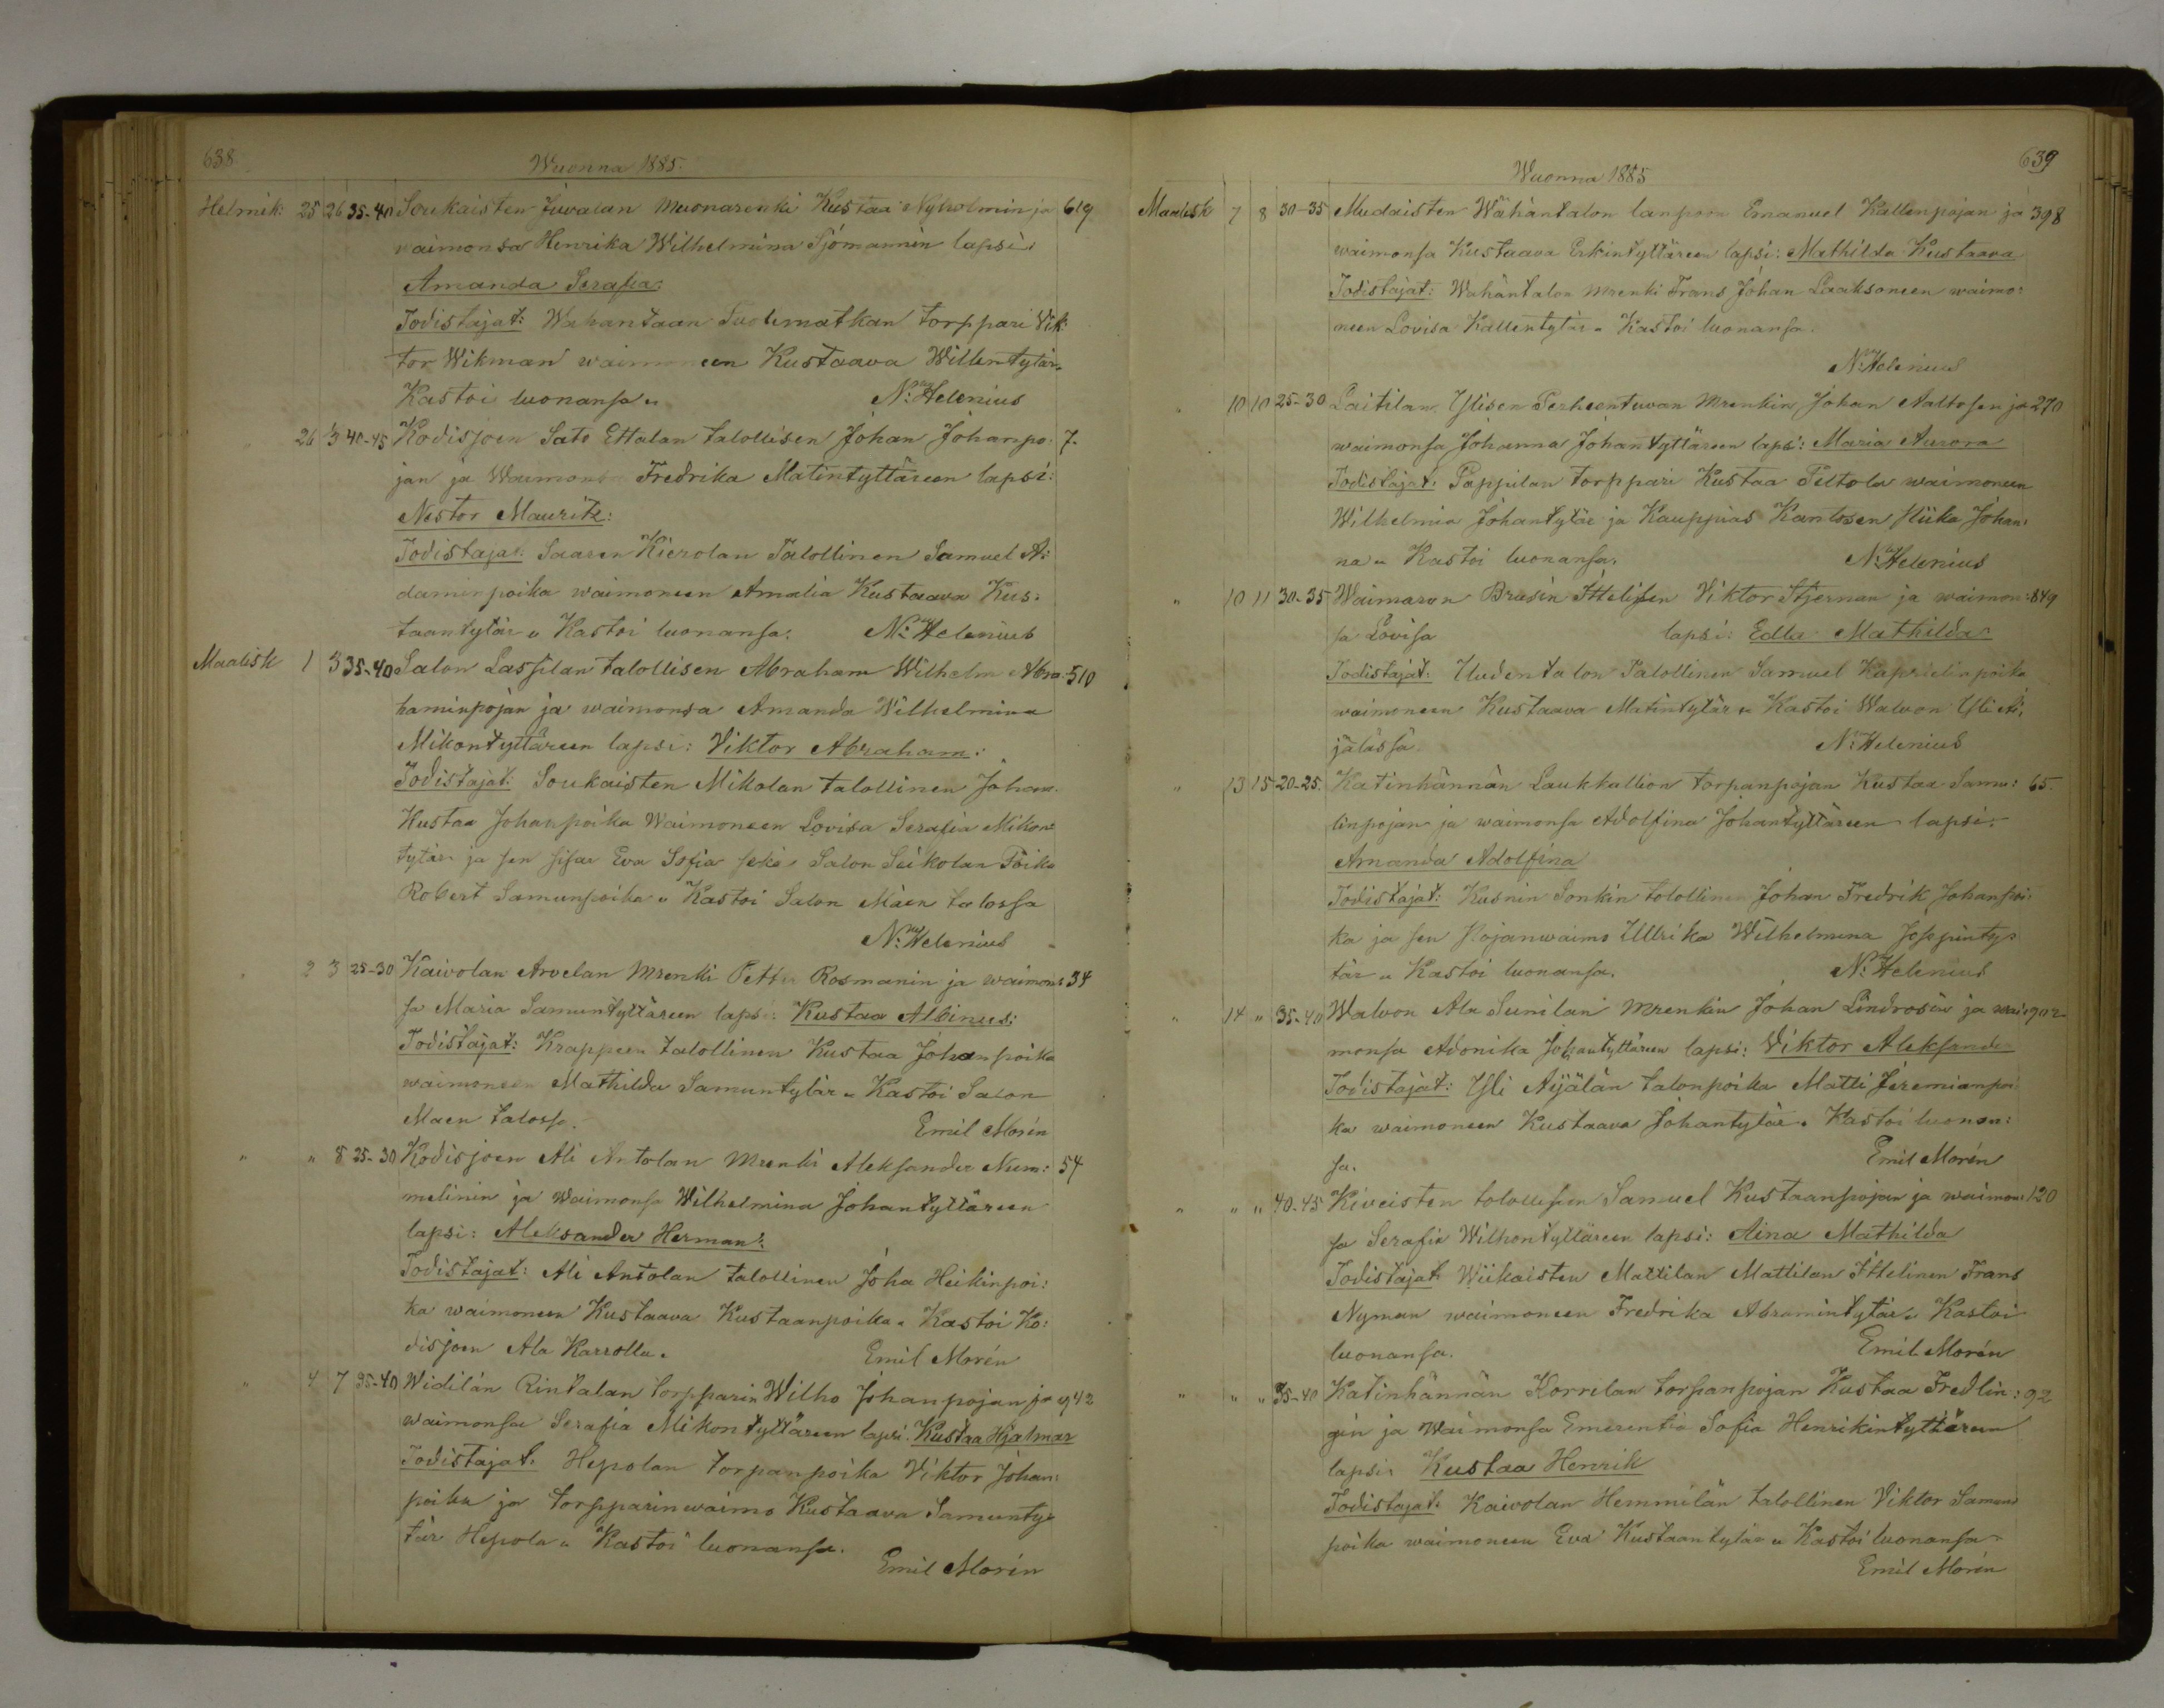 638.
Wuonna 1885.
Helmik: 25 26 35-40 Soukaisten Juvalan Muonarenki Kustaa Nyholmin ja 619
vaimonsa Henrika Wilhelmina Sjömannin lapsi:
Amanda Serafia:
Todistajat: Wahantaan torppari Vik:
tor Wikman waimoneen Kustaava Willentytär
Kastoi luonansa N: Helenius
" 26 3 40-45 Kodisjoen Sato Ettalan talollisen Johan Johanpo: 7.
jan ja Waimonsa Fredrika Matintyttäreen lapsi:
Nestor Mauritz:
Todistajat: Saaren Kierolan Talollinen Samuel A:
daminpoika waimoneen Amalia Kustaava Kus:
taantytär " Kastoi luonansa. N: Helenius
Maalisk 1 3 35-40 Salon Lassilan talollisen Abraham Wilhelm Abra: 510
haminpojan ja waimonsa Amanda Wilhelmina
Mikontyttäreen lapsi: Viktor Abraham:
Todistajat: Soukaisten Mikolan talollinen Johan
Kustaa Johanpoika Waimoneen Lovisa Serafia Mikon
tytär ja sen sisar Eva Sofia sekä Salon Seikolan Poika
Robert Samunpoika " Kastoi Salon Mäen talossa
N: Helenius
" 2 3 25-30 Kaivolan Arvelan Mrenki Petter Rosmanin ja waimon: 34
sa Maria Samuntyttäreen lapsi: Kustaa Albinus:
Todistajat: Krappeen talollinen Kustaa Johanpoika
waimoneen Mathilda Samuntytär " Kastoi Salon
Maen talossa. Emil Morén
" " 8 25-30 Kodisjoen Ali Antolan Mrenki Aleksander Num: 54
melinin ja Waimonsa Wilhelmina Johantyttäreen
lapsi: Aleksander Herman:
Todistajat: Ali Antolan talollinen Joha Heikinpoi:
ka waimoneen Kustaava Kustaanpoika " Kastoi Ko:
disjoen Ala Karrolla. Emil Morén
" 4 7 35-40 Widilän Rintalan torpparin Wilho Johanpojan ja 942
waimonsa Serafia Mikontyttäreen lapsi: Kustaa Hjalmar
Todistajat: Hepolan torpanpoika Viktor Johan:
poika ja torpparinwaimo Kustaava Samunty:
tär Hepola " Kastoi luonansa.
Emil Morén
639
Wuonna 1885
Maalisk 7 8 30-35 Mudaisten Wähäntalon Emanuel Kallenpojan ja 398
waimonsa Kustaava Erkintyttäreen lapsi: Mathilda Kustaava
Todistajat: Wahäntalon Mrenki Frans Johan Laaksoneen waimo:
neen Lovisa Kallentytär " Kastoi luonansa.
N: Helenius
" 10 10 25-30 Laitilan Ylisen Perheentuvan Mrenkin Johan Aaltosen ja 270
waimonsa Johanna Johantyttäreen lapsi: Maria Aurora
Todistajat: Pappilan torppari Kustaa Peltola waimoneen
Wilhelmia Johantytär ja Kauppias Kantosen Johan:
na " Kastoi luonansa. N: Helenius
" 10 11 30-35 Waimaron Brusin Ittelisen Viktor Stjernan ja waimon: 849
sa Lovisa lapsi: Edla Mathilda
Todistajat: Uudentalon Talollinen Samuel Kaprielinpoika
waimoneen Kustaava Matintytär " Kastoi Walvon Yli Äi:
jälässä. N: Helenius
" 13 15 20-25. Katinhännän Laukkallion torpanpojan Kustaa Samu: 65.
linpojan ja waimonsa Adolfina Johantyttäreen lapsi:
Amanda Adolfina
Todistajat: Kusnin Sonkin talollinen Johan Fredrik Johanpoi:
ka ja sen Pojanwaimo Ullrika Wilhelmina Jospinty:
tär " Kastoi luonansa. N: Helenius
" 14 " 35-40 Walvon Ala Sunilan Mrenkin Johan Lindrosin ja wai: 902
monsa Adonika Johantyttäreen lapsi: Viktor Aleksander
Todistajat: Yli Äijälän talonpoika Matti Jeremianpoi
ka waimoneen Kustaava Johantytär " Kastoi luonan:
sa. Emil Morén
" " " 40-45 Kiveisten talollisen Samuel Kustaanpojan ja waimon: 120
sa Serafia Wilhontyttäreen lapsi: Aina Mathilda
Todistajat: Wiikaisten Mattilan Mattilan Ittelinen Frans
Nyman waimoneen Fredrika Abramintytär " Kastoi
luonansa. Emil Morén
" " " 35-40 Katinhännän Korrilan torpanpojan Kustaa Fredlin: 92
gin ja Waimonsa Emerentia Sofia Henrikintyttäreen
lapsi: Kustaa Henrik
Todistajat: Kaivolan Hemmilän talollinen Viktor Samun
poika waimoneen Eva Kustaantytär " Kastoi luonansa
Emil Morén